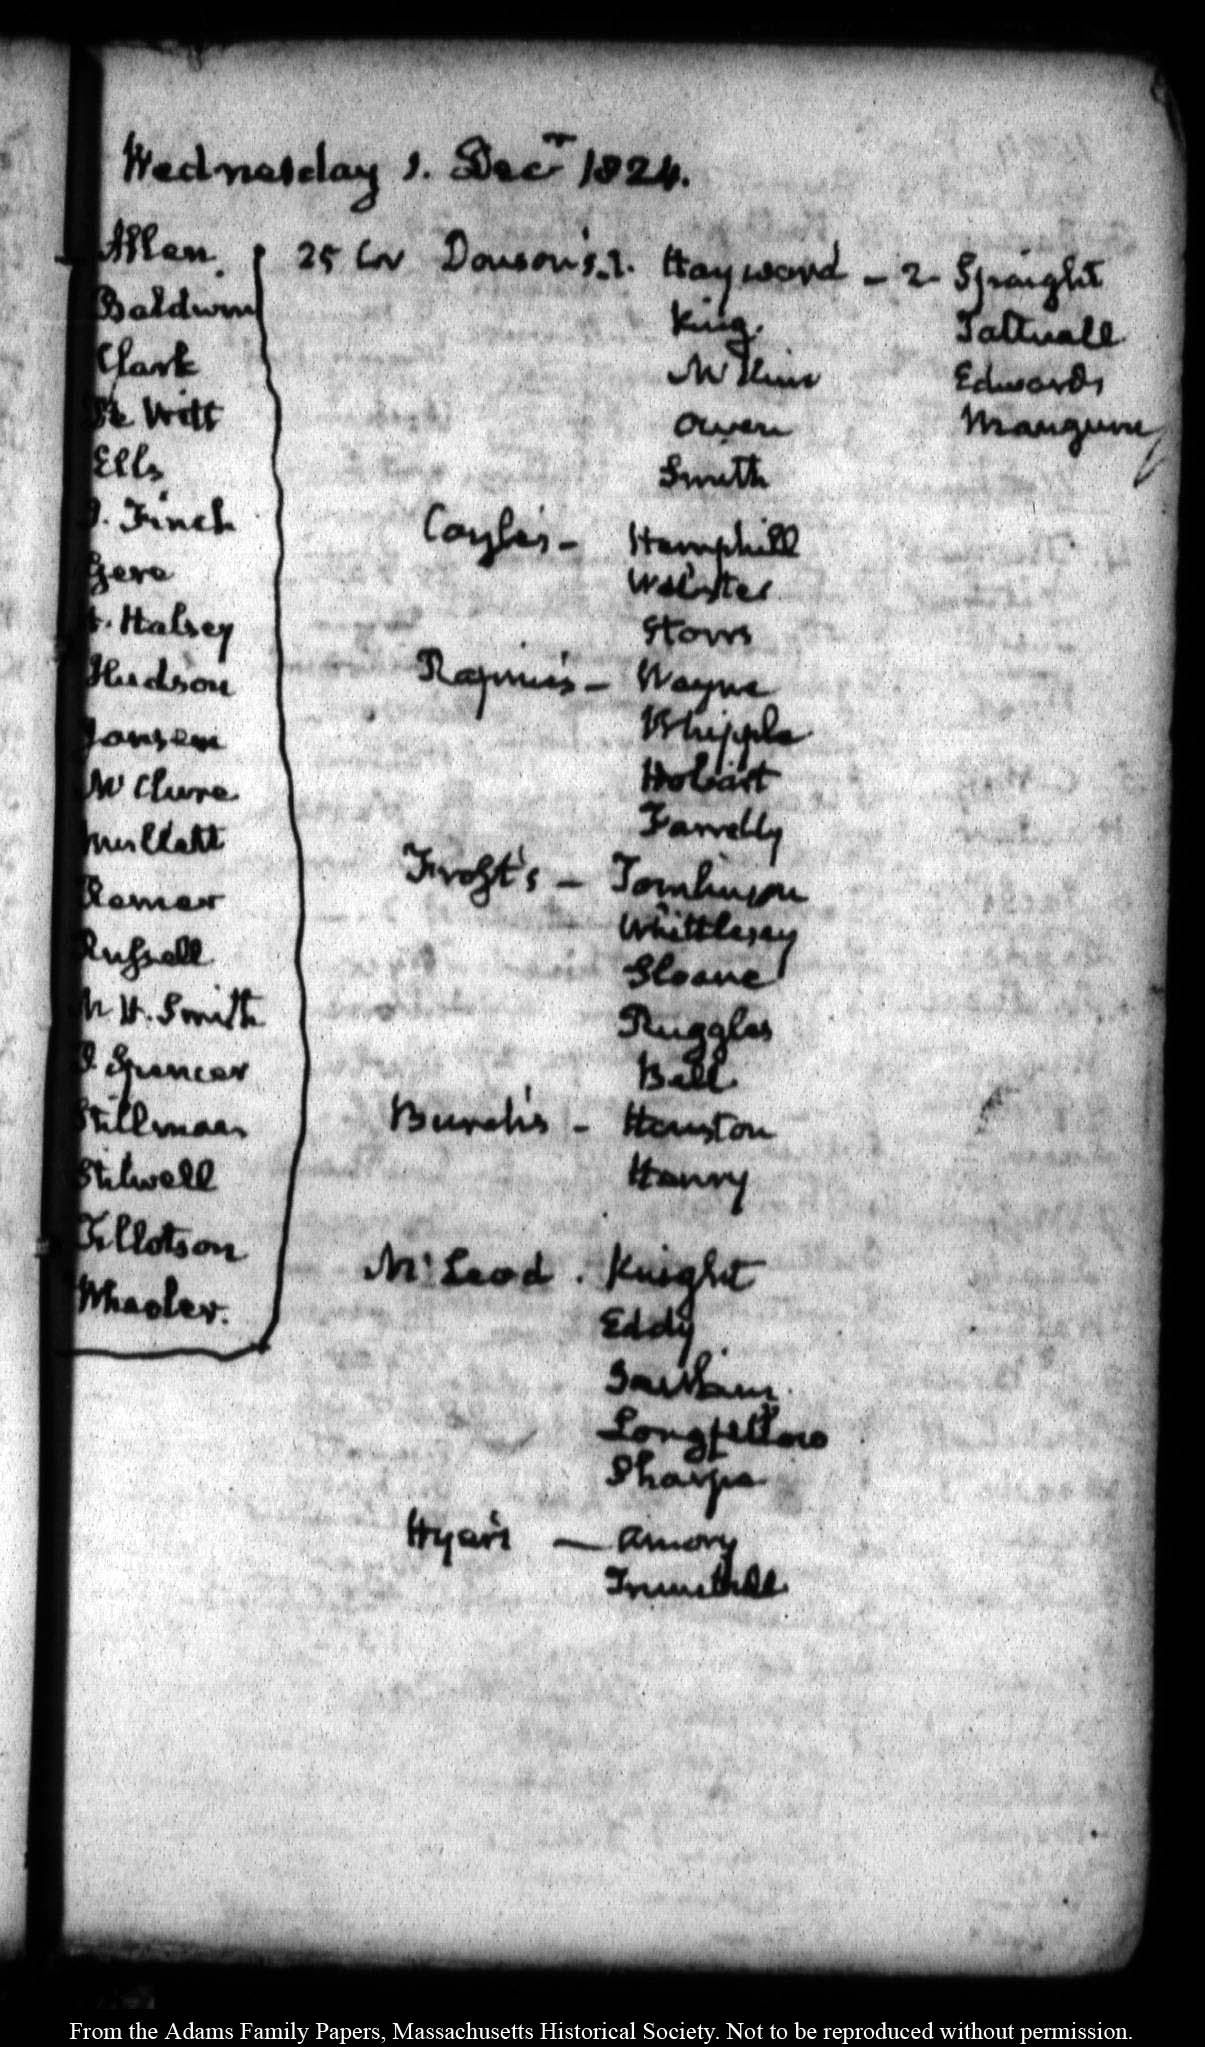 Wednesday 1. Decr 1824.
Allen.
Baldwin
Clark
De Witt
Ells
I. Finch
Gere
H. Halsey
Hudson
Jansen
McClure
Remer
Russell
W H. Smith
I Spencer
Stillman
Stilwell
Tillotson
Wheeler.
25 Cov Dowson's.1. Hayward – 2 – Spaight
King. Tattnall
McKim Edwards
Owen Mangum
Smith
Coyle's – Hemphill
Webster
Storrs
Rapine's – Wayne
Whipple
Hobart
Farrelly
Frost's – Tomlinson
Whittlesey
Sloane
Ruggles
Bell
Burch's – Houston
Henry
McLeod. Knight
Eddy
Longfellow
Sharpe
Hyer's — Amory
Trumbull
From the Adams Family Papers, Massachusetts Historical Society. Not to be reproduced without permission.